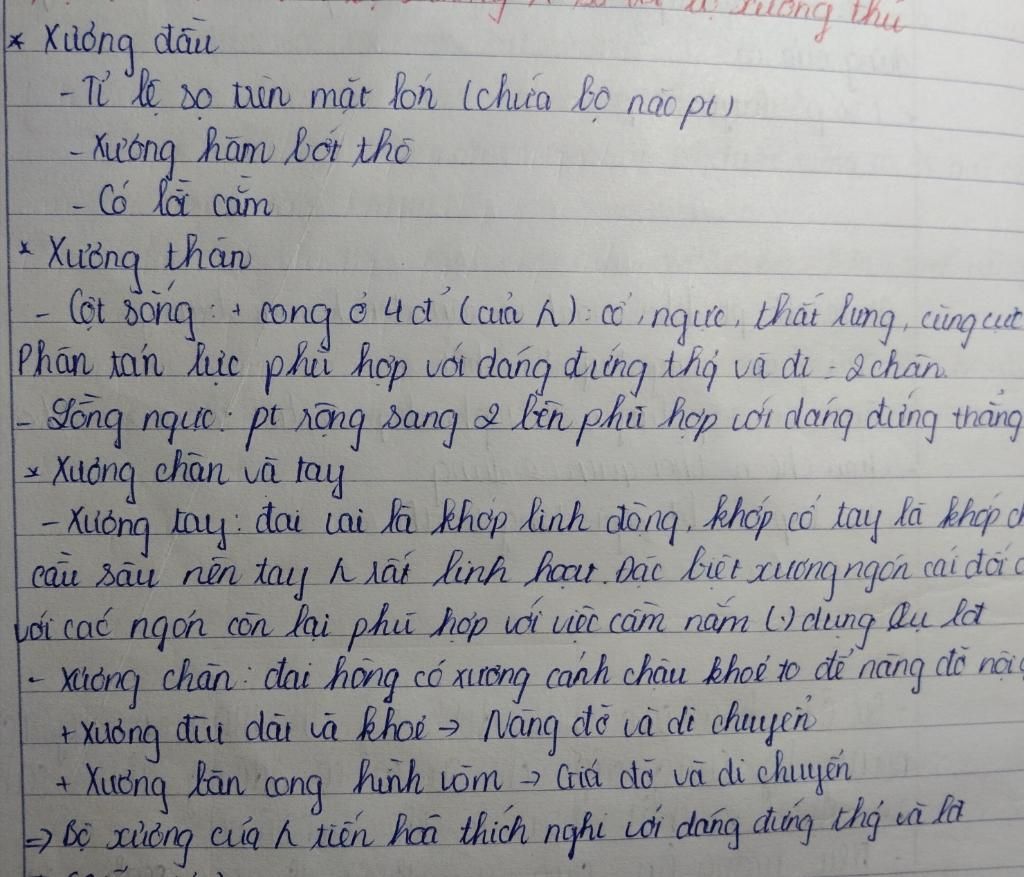 xương thú
* Xương đầu
- Tỉ lệ sọ trên mặt lớn (chứa bộ não pt)
- Xương hàm bớt thô
- Có lồi cằm
* Xương thân
- Cột sống: + cong ở 4 đ' (của h): cổ, ngực, thắt lưng, cùng cụt
Phân tán lực phù hợp với dáng đứng thg và đi = 2 chân.
- Lồng ngực: pt rộng sang 2 bên phù hợp với dáng đứng thẳng
* Xương chân và tay
- Xương tay: đai vai là khớp linh động, khớp cổ tay là khớp
cầu sâu nên tay h rất linh hoạt. Đặc biệt xương ngón cái đối
với các ngón còn lại phù hợp với việc cầm nắm (.) dụng cụ lđ
- Xương chân: đai hông có xương cánh chậu khoẻ to để nâng đỡ nội
+ Xương đùi dài và khoẻ → Nâng đỡ và di chuyển
+ Xương bàn cong hình vòm → Giá đỡ và di chuyển
=> Bộ xương của h tiến hoá thích nghi với dáng đứng thg và lđ